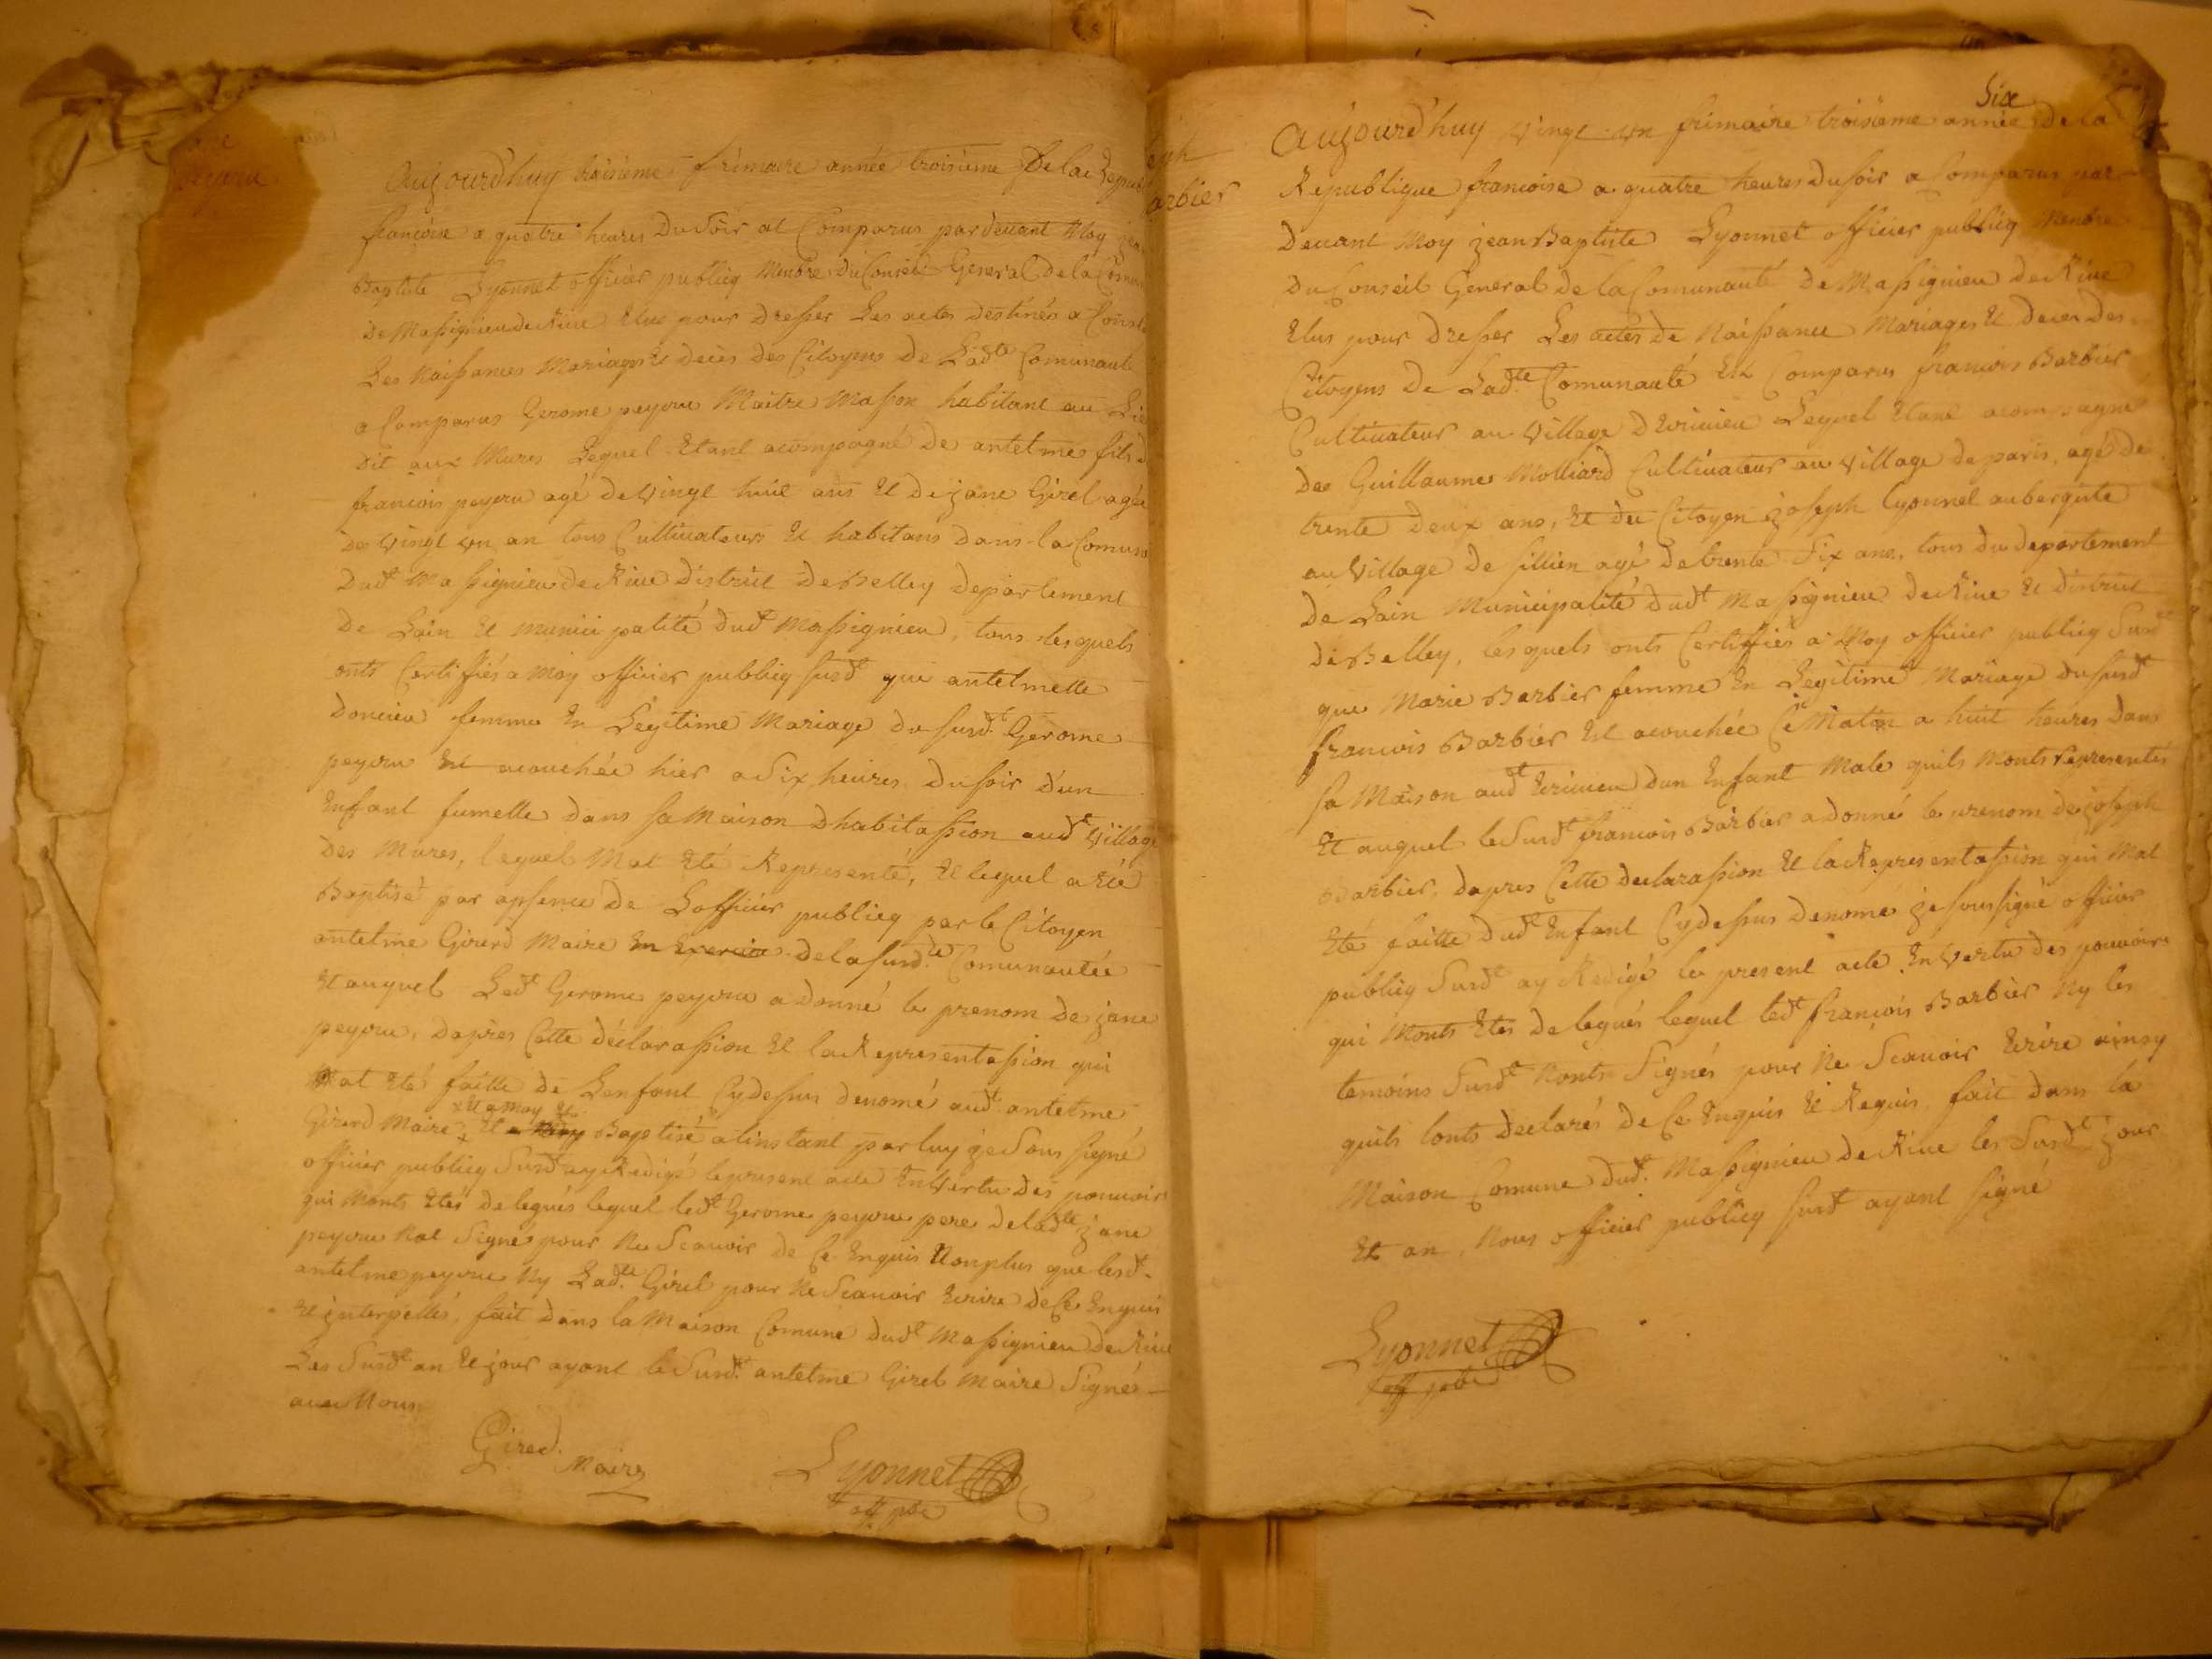 Aujourd'huy troisieme frimaire année troisieme De la Repub
francoise a quatre heures Du soir at Comparus par devant Moy jean
Baptiste Lyonnet officier publicq Menbre Du Conseil General De la Comun
De Massignieu de Rive Elus pour Dresser Les actes destinés a Const
Les Naissances Mariages Et decès des Citoyens De Ladte Comunauté
a Comparus Gerome peyssu Maitre Masson habitant au Lie
Dit aux Mures Lequel Etant acompagné De antelme fils d
francois peyssu agé de vingt huit ans Et de jane Girel agée
De vingt un an tous Cultivateurs Et habitans dans la Comun
Dudt Massignieu de Rive District de Belley departement
De Lain Et municipalité dudt Massignieu, tous lesquels
onts Certiffiés a moy officier publicq susdt que antelmette
Doncieu femme En Legitime Mariage du susdt Gerome
peyssu Est acouchée hier a Six heures du soir d'un
Enfant fumelle dans sa Maison dhabitassion audt village
des Mures, lequel Mat Eté Representé, Et lequel a Eté
Baptisé par apsence de Lofficier publicq par le Citoyen
antelme Girerd Maire En Exercice de la susdte Comunautée
Et auquel Ledt Gerome peyssu a donné le prenom de jane
peyssu, dapres Cette déclarassion Et la Representassion qui
Mat Eté faitte de Lenfant Cydessus denomé audt antelme
x Et a Moy Et
Girerd Maire x Et a Moy Baptisé a linstant par luy je Soussigné
officier publicq Susdt ay Redigé le present acte En Vertu des pouvoirs
qui Monts Etés delegués lequel ledt Gerome peyssu pere de ladte jane
peyssu Nat Signé pour Ne Scavoir de Ce Enquis Nonplus que lesdt
antelme peyssu Ny Ladte Girel pour Ne Scavoir Ecrire de Ce Enquis
Et jnterpellés, fait dans la Maison Comune dudt Massignieu de Rive
Les Susdt an Et jour ayant le Susdt antelme Girel Maire Signés
avec Nous
Girerd Maire
Lyonnet
off pbc
eph
arbier
Six
Aujourd'huy vingt un frimaire troisieme année de la
Republique francoise a quatre heures du soir a Comparus par
Devant Moy jean Baptiste Lyonnet officier publicq Menbre
Du Conseil General de la Comunauté De Massignieu de Rive
Elus pour dresser Les actes de Naissance Mariages Et deces des
Citoyens De Ladte Comunauté Est Comparus francois Barbier
Cultivateur au Village d'Ecrivieu Lequel Etant acompagné
de Guillaume Molliard Cultivateur au village de paris, agé de
trente deux ans, Et du Citoyen joseph lyonnet aubergiste
au Village de sillien agé de trente Six ans, tous du departement
de Lain Municipalité dudt Massignieu de Rive Et district
de Belley, lesquels onts Certiffiés a Moy officier publicq Susdt
que Marie Barbier femme En Legitime Mariage du susdt
francois Barbier Est acouchée Ce Matin a huit heures dans
sa Maison audt Ecrivieu dun Enfant Male quils Monts representés
Et auquel le Susdt francois Barbier a donné le prenom de joseph
Barbier, dapres Cette declarassion Et la Representassion qui Mat
Eté faitte dudt Enfant Cydessus denomé je soussigné officier
publicq Susdt ay Redigé le present acte En Vertu des pouvoirs
qui Monts Etés delegués lequel ledt francois Barbier Ny les
temoins Susdt Nonts Signés pour Ne Scavoir Ecrire ainsy
quils lonts declarés de Ce Enquis Et Requis, fait dans la
Maison Comune dudt Massignieu de Rive les Susdt jour
Et an, Nous officier publicq susdt ayant signé
Lyonnet
off pbc